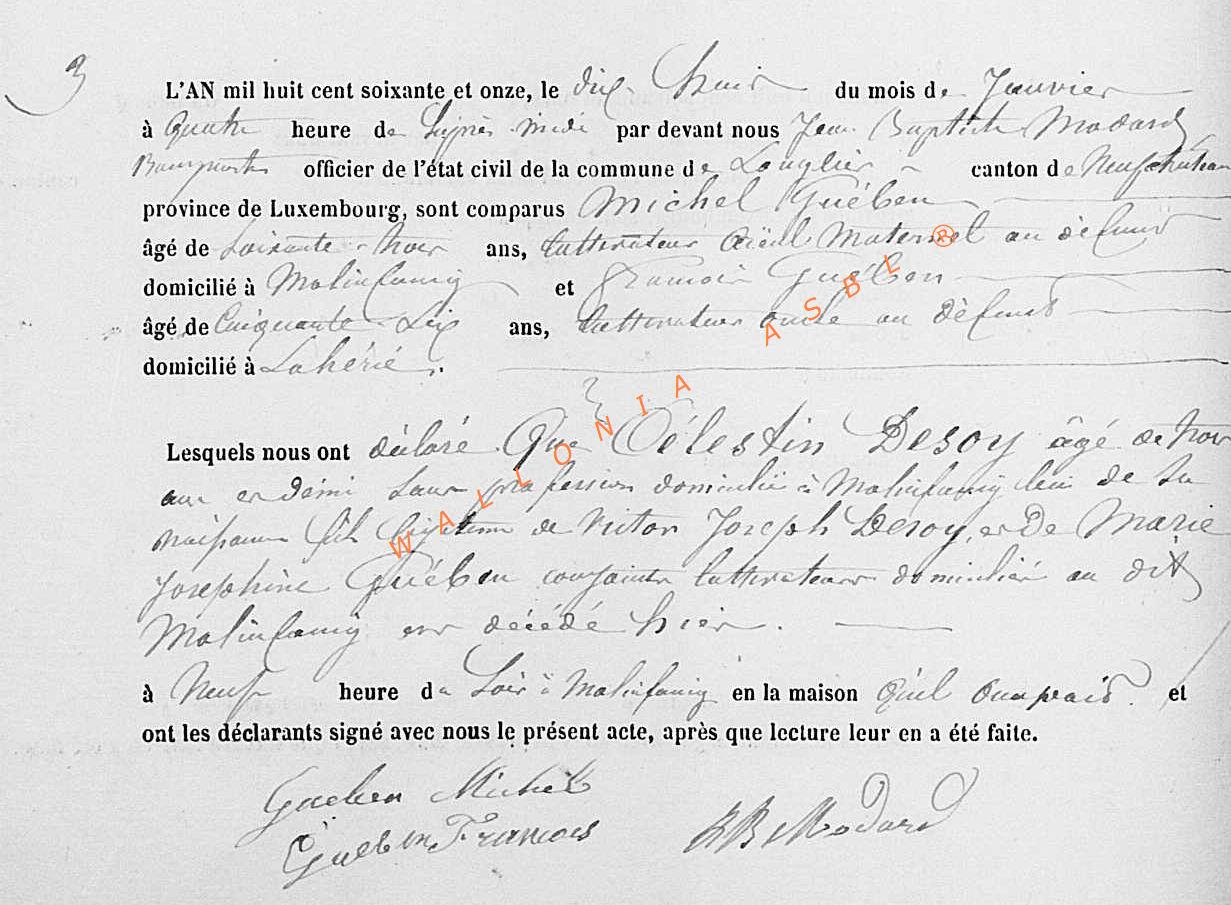 3
L'AN mil huit cent soixante et onze, le dix huit du mois de Janvier
à Quatre heure de L'après midi par devant nous Jean Baptiste Modard
Bourgmestre officier de l'état civil de la commune de Longlier canton de Neufchateau
province de Luxembourg, sont comparus Michel Guében
âgé de Soixante ans, Cultivateur aïeul Maternel au défunt
domicilié à Molinfaing et François Guében
âgé de Cinquante Six ans, Cultivateur oncle au défunt
domicilié à Lahérie.
Lesquels nous ont déclaré Que Célestin Desoy âgé de
ans et demi Sans profession domicilié à Molinfaing lieu de Sa
naissance fils légitime de Victor Joseph Desoy, et De Marie
Josephine Guében conjoints Cultivateurs domiciliés au dit
Molinfaing est décédé hier.
à Neuf heure du Soir à Molinfaing en la maison Qu'il Occupait et
ont les déclarants signé avec nous le présent acte, après que lecture leur en a été faite.
Gueben Michel
Gueben François
JB Modard
WALLONIA ASBL ®